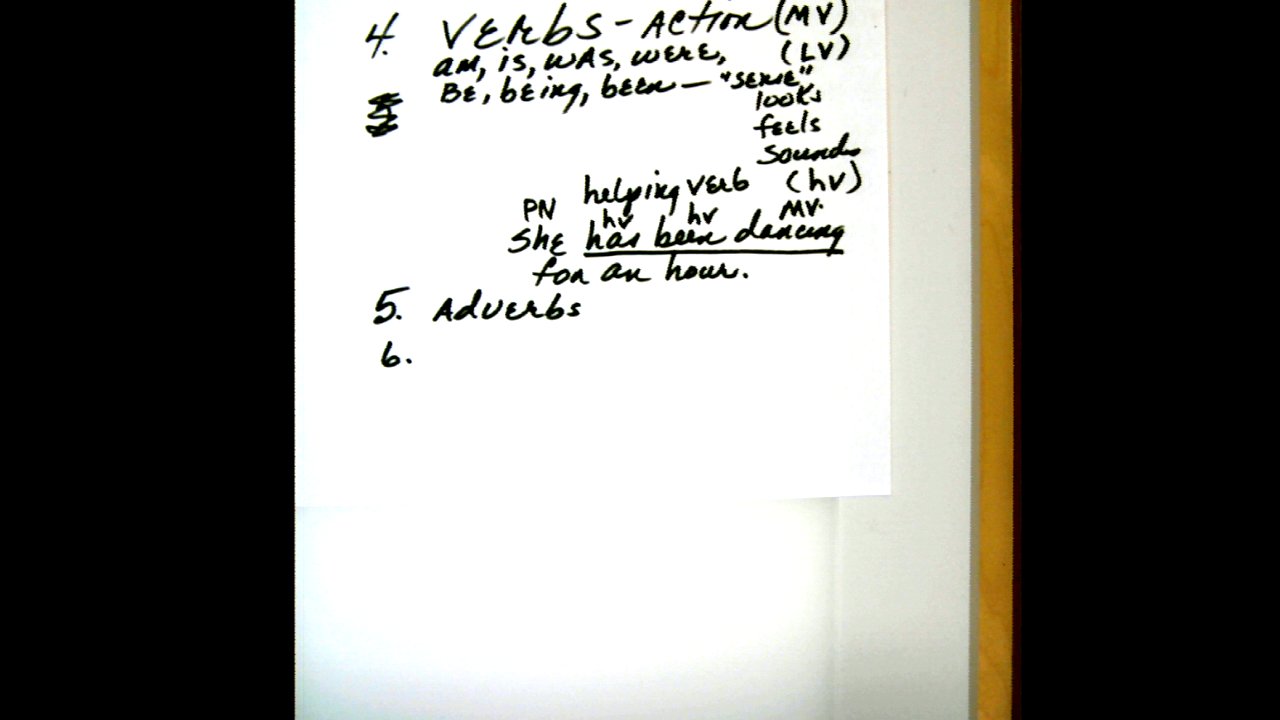 4. VERBS - ACTION (MV)
am, is, was, were, (LV)
BE, being, been — "SENSE"
looks
feels
sounds
helping verb (hv)
PN hv hv MV.
She has been dancing
for an hour.
5. Adverbs
6.